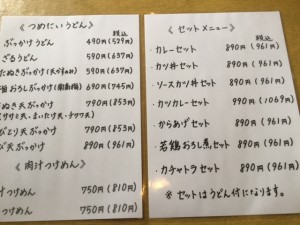 《つめたいうどん》
税込
ぶっかけうどん 490円(529円)
ざるうどん 590円(637円)
たぬきぶっかけ(天かすのみ) 590円(637円)
おろしぶっかけ 690円(745円)
天ぶっかけ 790円(853円)
とり天ぶっかけ 790円(853円)
天ぶっかけ 890円(961円)
《肉汁つけめん》
つけめん 750円(810円)
つけめん 750円(810円)
《セットメニュー》
税込
・カレーセット 890円(961円)
・カツ丼セット 890円(961円)
・ソースカツ丼セット 890円(961円)
・カツカレーセット 990円(1069円)
・からあげセット 890円(961円)
・若鶏おろし煮セット 890円(961円)
・カチャトラセット 890円(961円)
※セットはうどん付になります。